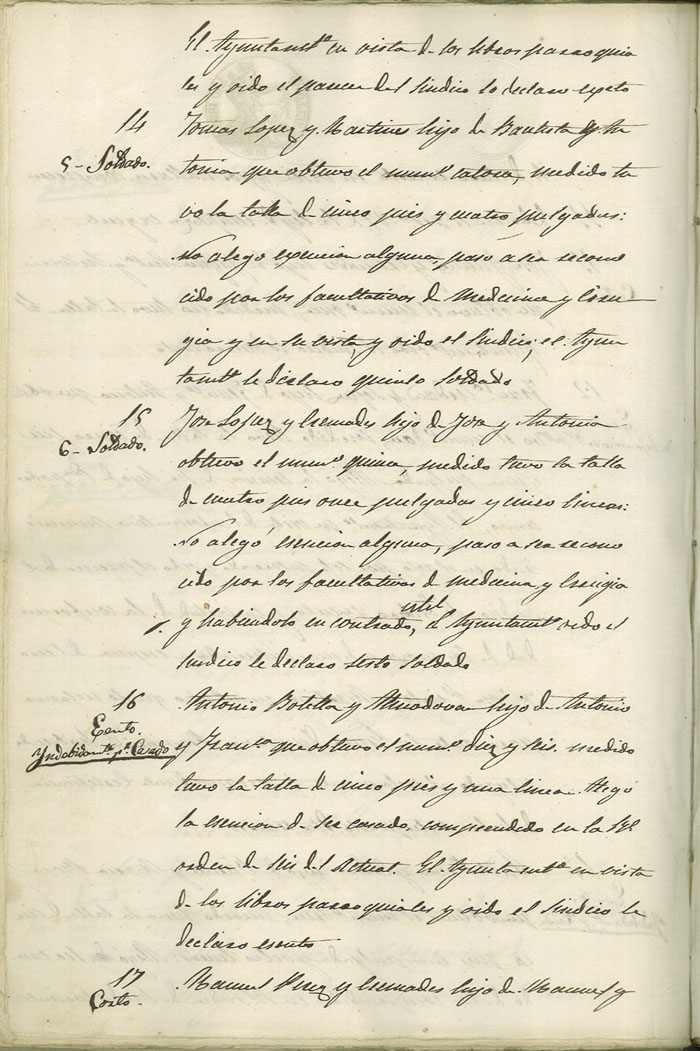 El Ayuntamto en vista de los libros parroquia
les y oido el parecer del sindico lo declaro esento
14
Tomas Lopez y Martines hijo de Bautista y An
5 - Soldado.
tonia que obtuvo el numo catorce, medido tu
vo la talla de cinco pies y cuatro pulgadas:
No alego esencion alguna, pasó a ser recono
cido por los facultativos de Medicina y Ciru
gia y en su vista, y oido el Sindico, el Ayun
tamto le declaro quinto Soldado
15
Jose Lopez y hijo de Jose y Antonia
6 - Soldado.
obtuvo el numo quince, medido tuvo la talla
de cuatro pies once pulgadas y cinco lineas:
No alegó esencion alguna, paso a ser recono
cido por los facultativos de medicina y Cirugia
y habiendolo encontrado, util el Ayuntamto oido el
sindico le declaro sesto soldado
16
Antonio Botella y Almodovar hijo de Antonio
Esento.
Yndebidamte pr Casado
y Franca que obtuvo el numo diez y seis. medido
tuvo la talla de cinco pies y una linea. Alegó
la esencion de ser casado, comprendido en la Rl
orden de seis del Actual. El Ayuntamto en vista
de los libros parroquiales y oido el sindico le
declaro esento
17
Manuel Perez y hijo de Manuel y
Corto.